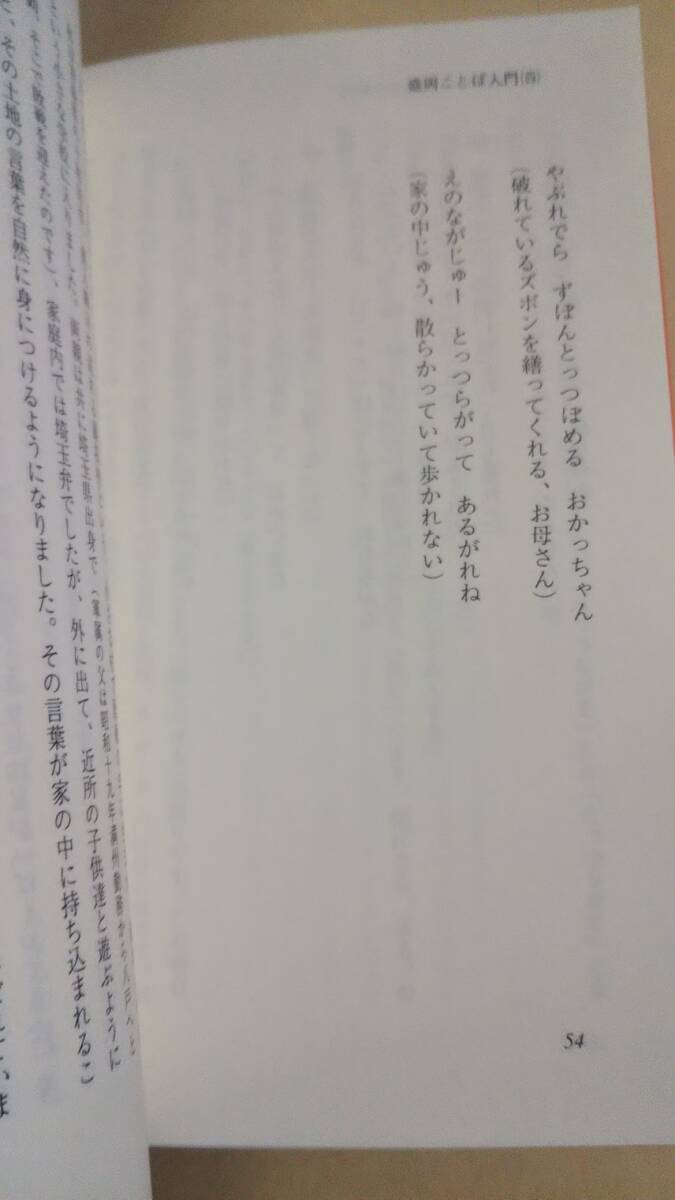 盛岡ことば入門(四)
やぶれでら　ずぼんとっつぼめる　おかっちゃん
(破れているズボンを繕ってくれる、お母さん)
えのながじゅー　とっつらがって　あるがれね
(家の中じゅう、散らかっていて歩かれない)
54
両親は共に埼玉県出身で、(軍属の父は昭和十九年満州勤務から八戸へと
そこで敗戦を迎えたのです)、家庭内では埼玉弁でしたが、外に出て、近所の子供達と遊ぶように
その土地の言葉を自然に身につけるようになりました。その言葉が家の中に持ち込まれるこ